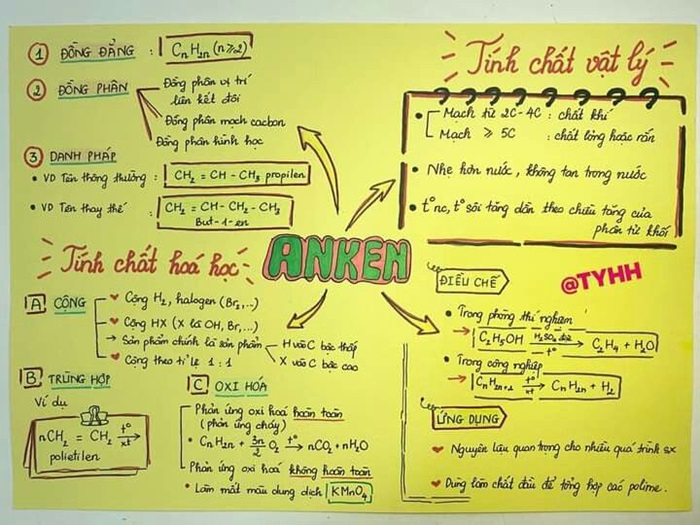 1 ĐỒNG ĐẲNG : CnH2n (n≥2)
2 ĐỒNG PHÂN
Đồng phân vị trí
liên kết đôi
Đồng phân mạch cacbon
Đồng phân hình học
3 DANH PHÁP
• VD Tên thông thường : CH2 = CH - CH3 propilen
• VD Tên thay thế : CH2 = CH - CH2 - CH3
But-1-en
Tính chất vật lý
• Mạch từ 2C-4C : chất khí
Mạch ≥ 5C : chất lỏng hoặc rắn
• Nhẹ hơn nước, không tan trong nước
• t°nc, t° sôi tăng dần theo chiều tăng của
phân tử khối
ANKEN
Tính chất hoá học
A CỘNG
Cộng H2, halogen (Br2,..)
Cộng HX (X là OH, Br,...)
→ Sản phẩm chính là sản phẩm
H vào C bậc thấp
X vào C bậc cao
Cộng theo tỉ lệ 1 : 1
B TRÙNG HỢP
Ví dụ
nCH2 = CH2 t° xt →
polietilen
C OXI HOA
Phản ứng oxi hoá hoàn toàn
(phản ứng cháy)
• CnH2n + 3n/2 O2 t° → nCO2 + nH2O
Phản ứng oxi hoá không hoàn toàn
• Làm mất màu dung dịch KMnO4
ĐIỀU CHẾ
@TYHH
• Trong phòng thí nghiệm
→ C2H5OH H2SO4 đặc t° → C2H4 + H2O
• Trong công nghiệp
→ CnH2n+2 t° xt → CnH2n + H2
ỨNG DỤNG
Nguyên liệu quan trọng cho nhiều quá trình sx
Dùng làm chất đầu để tổng hợp các polime.